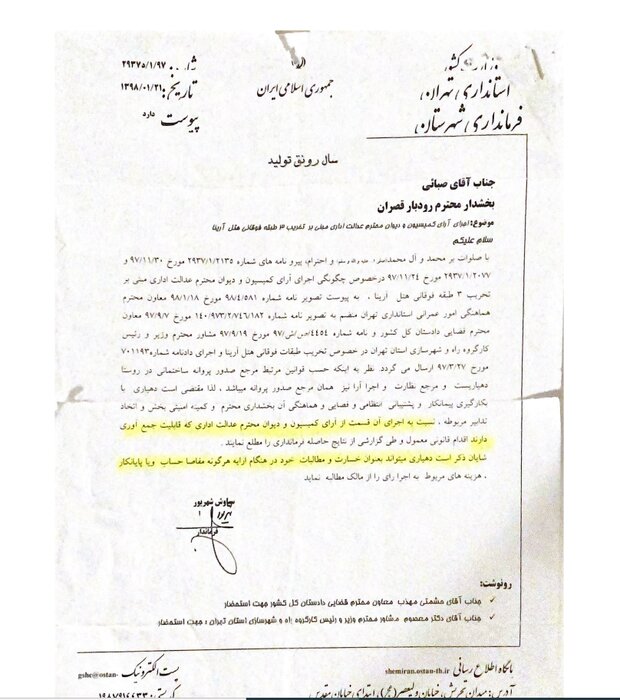 وزارت کشور
استانداری تهران
فرمانداری شهرستان
جمهوری اسلامی ایران
شماره: ۲۹۳۷۵/۱/۹۷
تاریخ: ۱۳۹۸/۰۱/۲۱
پیوست دارد
سال رونق تولید
جناب آقای صبائی
بخشدار محترم رودبار قصران
موضوع: اجرای آرای کمیسیون و دیوان محترم عدالت اداری مبنی بر تخریب ۳ طبقه فوقانی هتل آرینا
سلام علیکم
با صلوات بر محمد و آل محمد و احترام، پیرو نامه های شماره ۲۹۳۷/۱/۲۱۳۵ مورخ ۹۷/۱۱/۳۰ و
۲۹۳۷/۱/۲۰۷۷ مورخ ۹۷/۱۱/۲۴ درخصوص چگونگی اجرای آرای کمیسیون و دیوان محترم عدالت اداری مبنی بر
تخریب ۳ طبقه فوقانی هتل آرینا ، به پیوست تصویر نامه شماره ۹۸/۴/۵۸۱ مورخ ۹۸/۱/۱۸ معاون محترم
هماهنگی امور عمرانی استانداری تهران منضم به تصویر نامه شماره ۱۴۰/۹۷۳/۲/۷۴۶/۱۸۲ مورخ ۹۷/۹/۷ معاون
محترم قضایی دادستان کل کشور و نامه شماره ۴۴۵۴/ص/ش/۹۷ مورخ ۹۷/۹/۱۹ مشاور محترم وزیر و رئیس
کارگروه راه و شهرسازی استان تهران در خصوص تخریب طبقات فوقانی هتل آرینا و اجرای دادنامه شماره ۷۰۱۱۹۳
مورخ ۹۷/۳/۲۷ ارسال می گردد. نظر به اینکه حسب قوانین مرتبط مرجع صدور پروانه ساختمانی در روستا
دهیاریست و مرجع نظارت و اجرا آرا نیز همان مرجع صدور پروانه میباشد . لذا مقتضی است دهیاری با
بکارگیری پیمانکار و پشتیبانی انتظامی و قضایی و هماهنگی آن بخشداری محترم و کمیته امنیتی بخش و اتخاذ
تدابیر مربوطه ، نسبت به اجرای آن قسمت از آرای کمیسیون و دیوان محترم عدالت اداری که قابلیت جمع آوری
دارند اقدام قانونی معمول و طی گزارشی از نتایج حاصله فرمانداری را مطلع نمایند .
شایان ذکر است دهیاری میتواند بعنوان خسارت و مطالبات خود در هنگام ارایه هرگونه مفاصا حساب ویا پایانکار
، هزینه های مربوط به اجرا رای را از مالک مطالبه نماید
سیاوش شهریور
فرماندار
رونوشت:
✓ جناب آقای حشمتی مهذب معاون محترم قضایی دادستان کل کشور جهت استحضار
✓ جناب آقای دکتر معصوم مشاور محترم وزیر و رئیس کارگروه راه و شهرسازی استان تهران ؛ جهت استحضار
پایگاه اطلاع رسانی shemiran.ostan-th.ir
پست الکترونیک gshc@ostan-
آدرس: میدان تجریش، خیابان ولیعصر (عج)، ابتدای خیابان مقدس